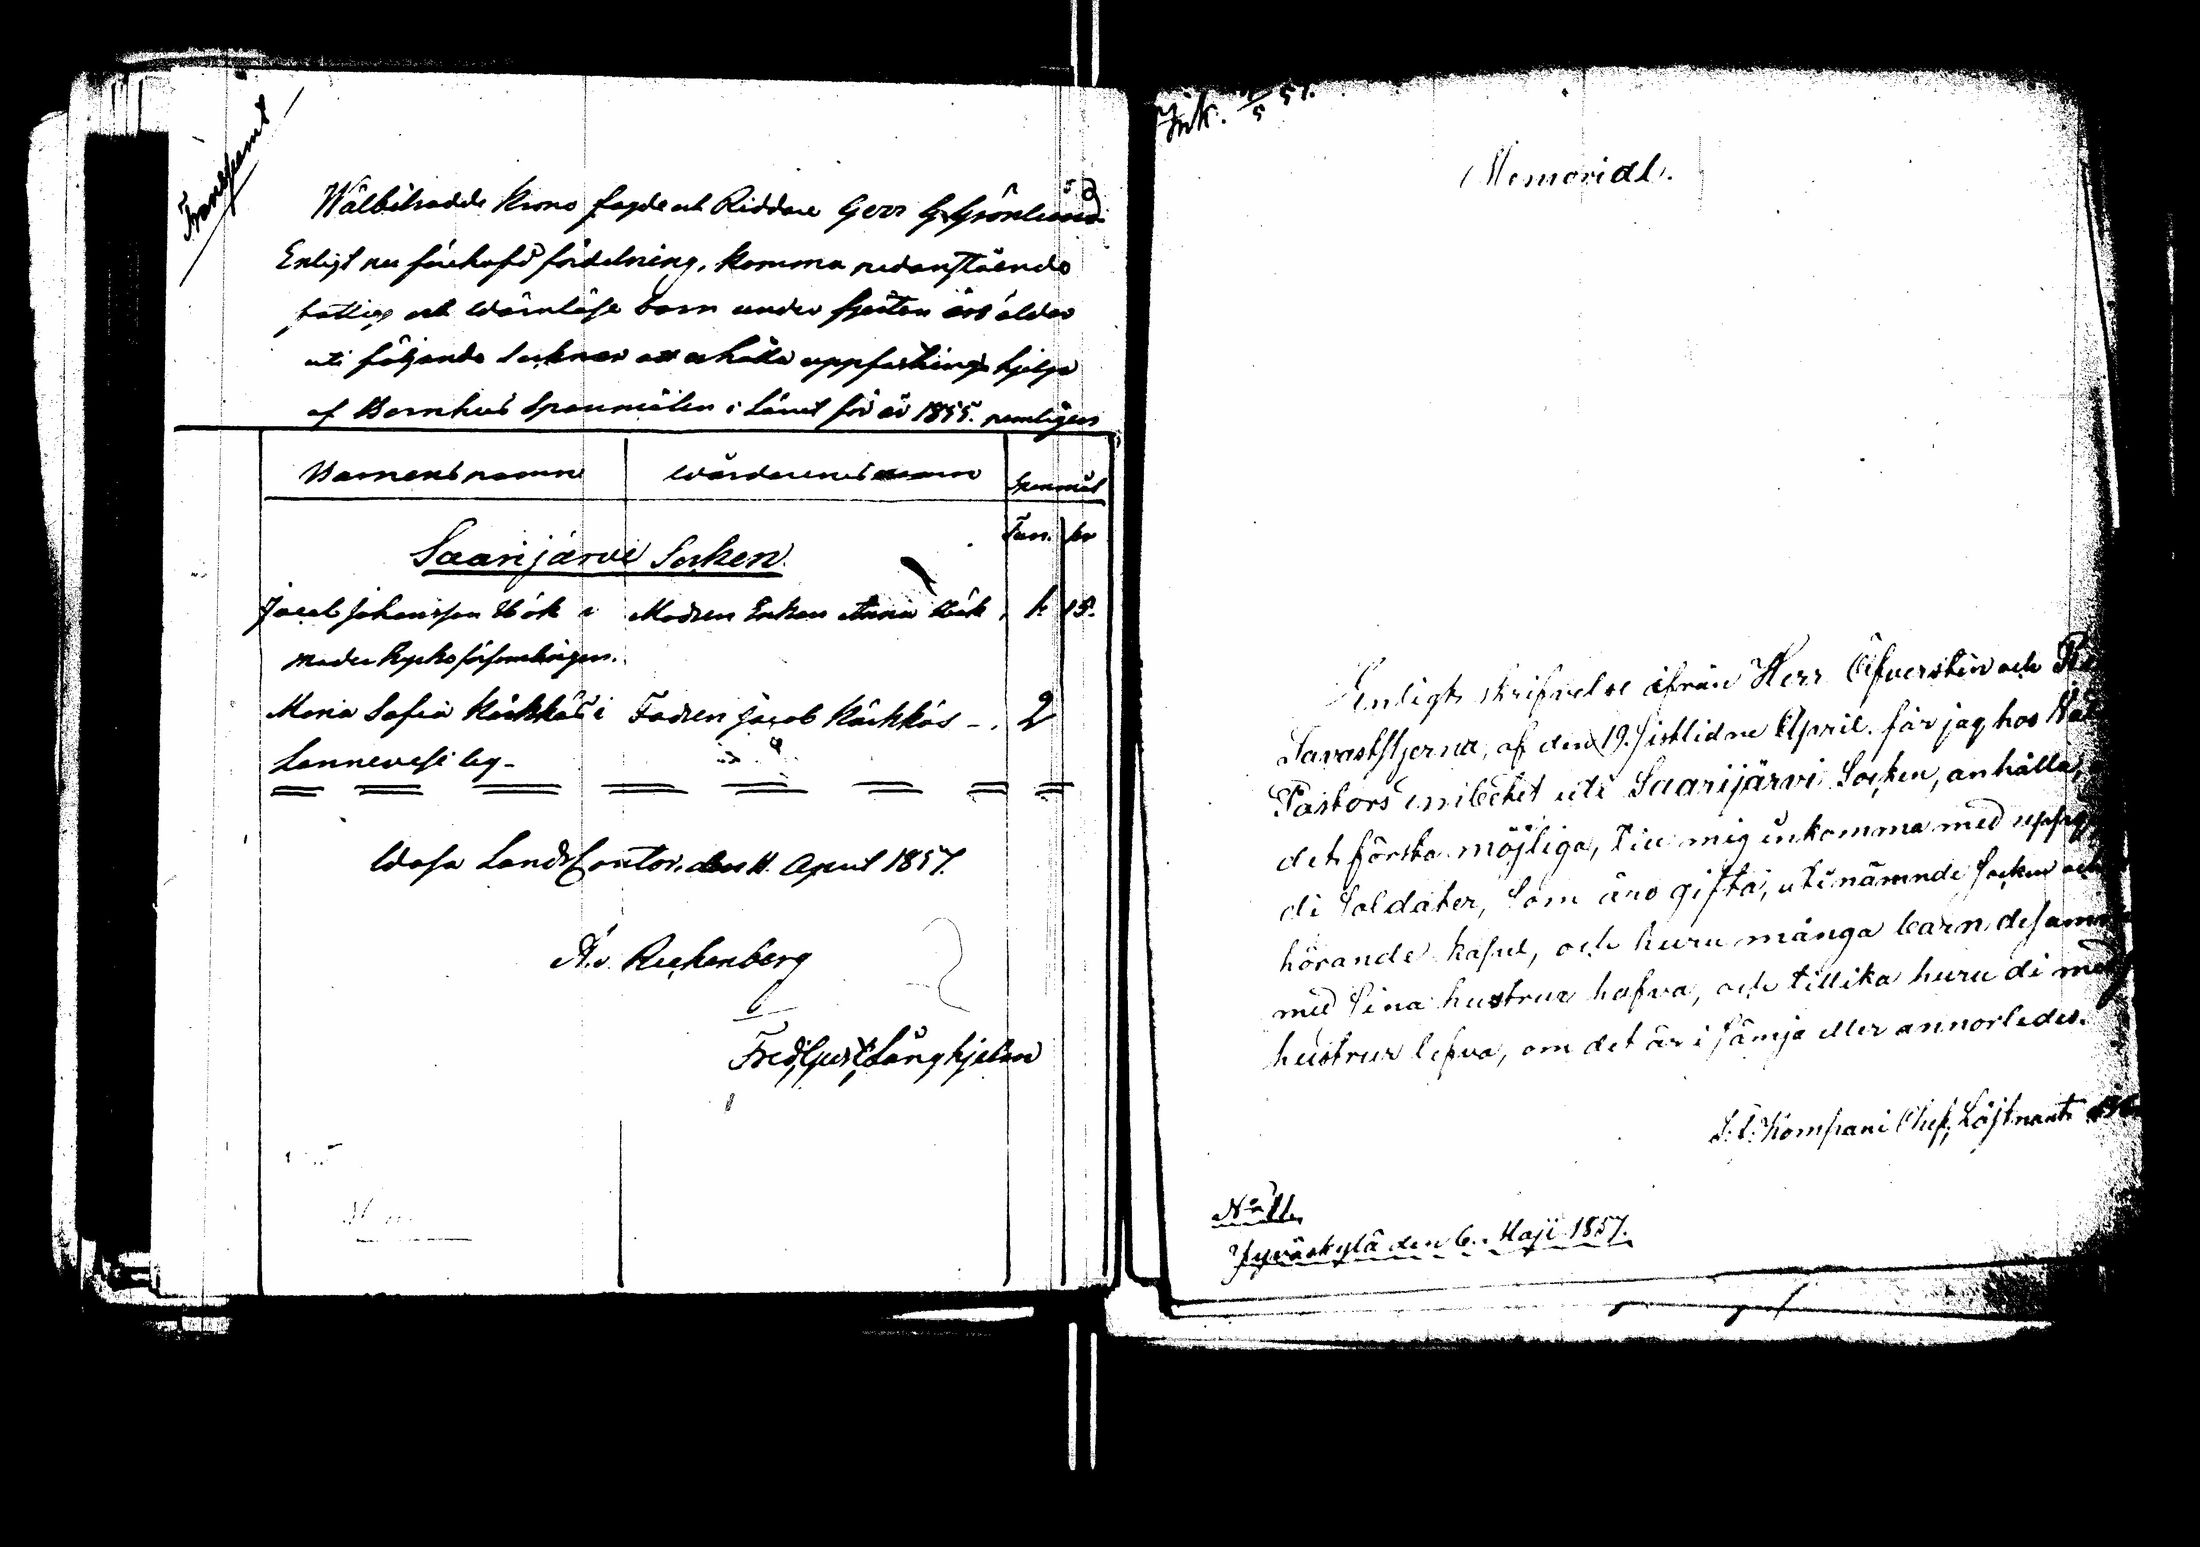 Transsumt
Wälbetrodde Krono fogde och Riddare Herr G. Grönlund
Enligt nu förehafd fördelning, komma nedanstående
fattige och wärnlöse barn under femton års ålder
uti följande Socknar att erhålla uppfostrings hjelp
af Barnhus Spanmålen i Länet för år 1855. nemligen
Barnens namn
Wårdarenes namn
Spanmål
Tun. kr
Saarijärvi Socken.
Jacob Johansson Hök i Modren Enkan Anna Hök, 1. 15.
Maria Sofia Kärkkäs i Fadren Jacob Kärkkäs - . 2
Lannevesi by -
Wasa Lands Contor, den 11. April 1857.
A. v. Reckenberg
Fred. Gust. Långhjelm
Ink. /5 57.
Memorial.
Enligt skrifvelse ifrån Herr Öfversten och
Savaststjerna, af den 19. sistlidne April. får jag hos
Pastors embetet uti Saarijärvi Socken, anhålla,
det första möjliga, till mig inkomma med
di Soldater, som äro gifta, uti nämnde Socken och
hörande kapul, och huru många barn desamm
med sina hustrur hafva, och tillika huru di med
hustrur lefva, om det är i sämja eller annorledes.
S. T. Kompani Chef, Löjtnant
No 11.
Jyväskylä den 6. Maji 1857.